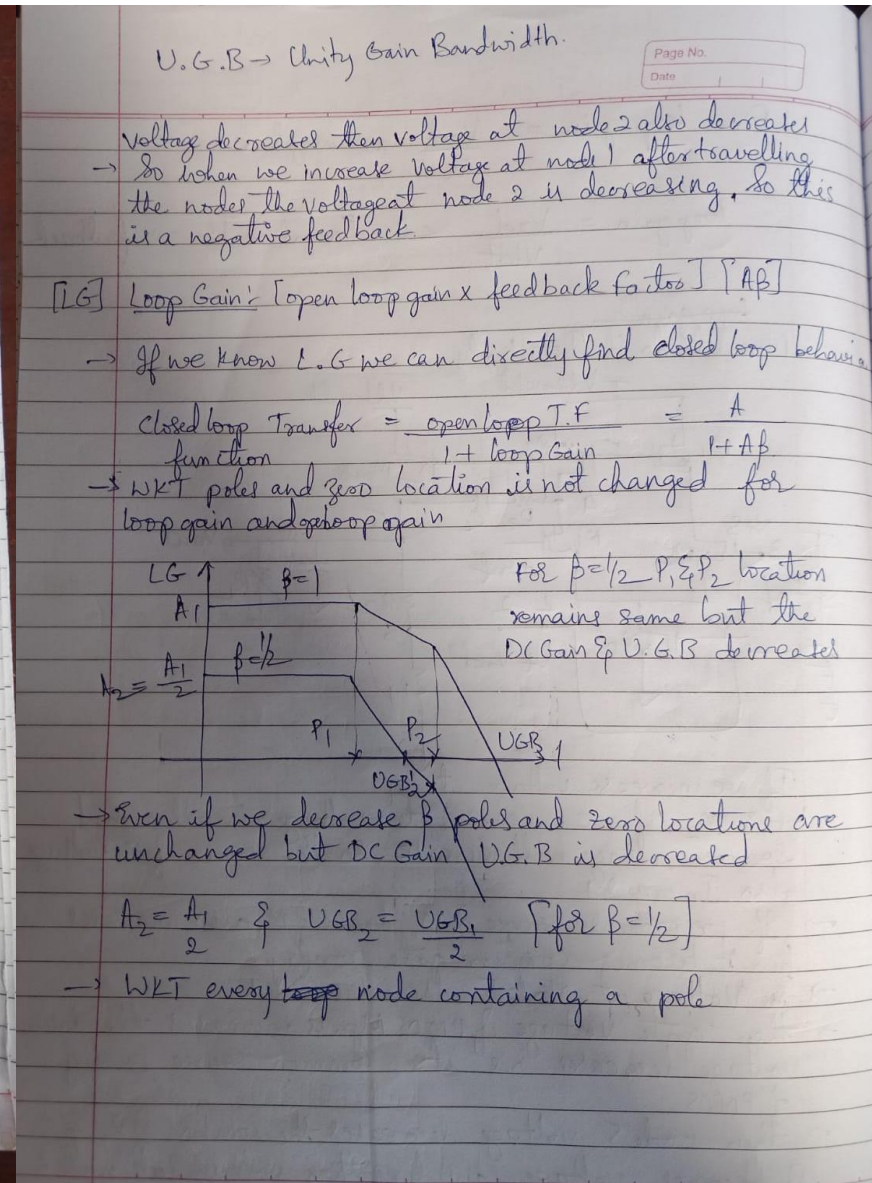 U.G.B → Unity Gain Bandwidth.
Page No.
Date
voltage decreases then voltage at node 2 also decreases
→ So when we increase voltage at node 1 after travelling
the nodes the voltage at node 2 is decreasing. So this
is a negative feedback.
[LG] Loop Gain :- [open loop gain x feedback factor] [Aβ]
→ If we know L.G we can directly find closed loop behavio
Closed loop Transfer function = open loop T.F / 1 + loop Gain = A / 1 + Aβ
→ WKT poles and zero location is not changed for
loop gain and loop gain
LG
β=1
A1
For β=1/2 P1 & P2 location
remains same but the
DC Gain & U.G.B decreases
A2 = A1/2
β=1/2
P1
P2
UGB1
UGB2
→ Even if we decrease β poles and zero locations are
unchanged but DC Gain U.G.B is decreased
A2 = A1/2 & UGB2 = UGB1/2 [for β=1/2]
→ WKT every node containing a pole